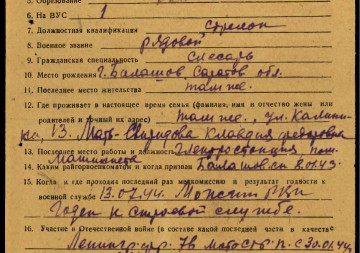 5. Образование
6. На ВУС 1
7. Должностная квалификация стрелок
8. Военное звание рядовой
9. Гражданская специальность слесарь
10. Место рождения г. Балашов Саратов. обл.
11. Последнее место жительства там же.
12. Где проживает в настоящее время семья (фамилия, имя и отчество жены или
родителей и точный их адрес) там же, ул. Калини-
на, 13. Мать- Свиридова Клавдия Федоровна
13. Последнее место работы и должность
14. Каким райгорвоенкоматом и когда призван Балашовск
15. Когда и где проходил последний раз медкомиссию и результат годности к
военной службе 13.07.44.
Годен к строевой службе.
16. Участие в Отечественной войне (в составе какой последней части и в качестве
Ленингр. 78 с 30.01.44